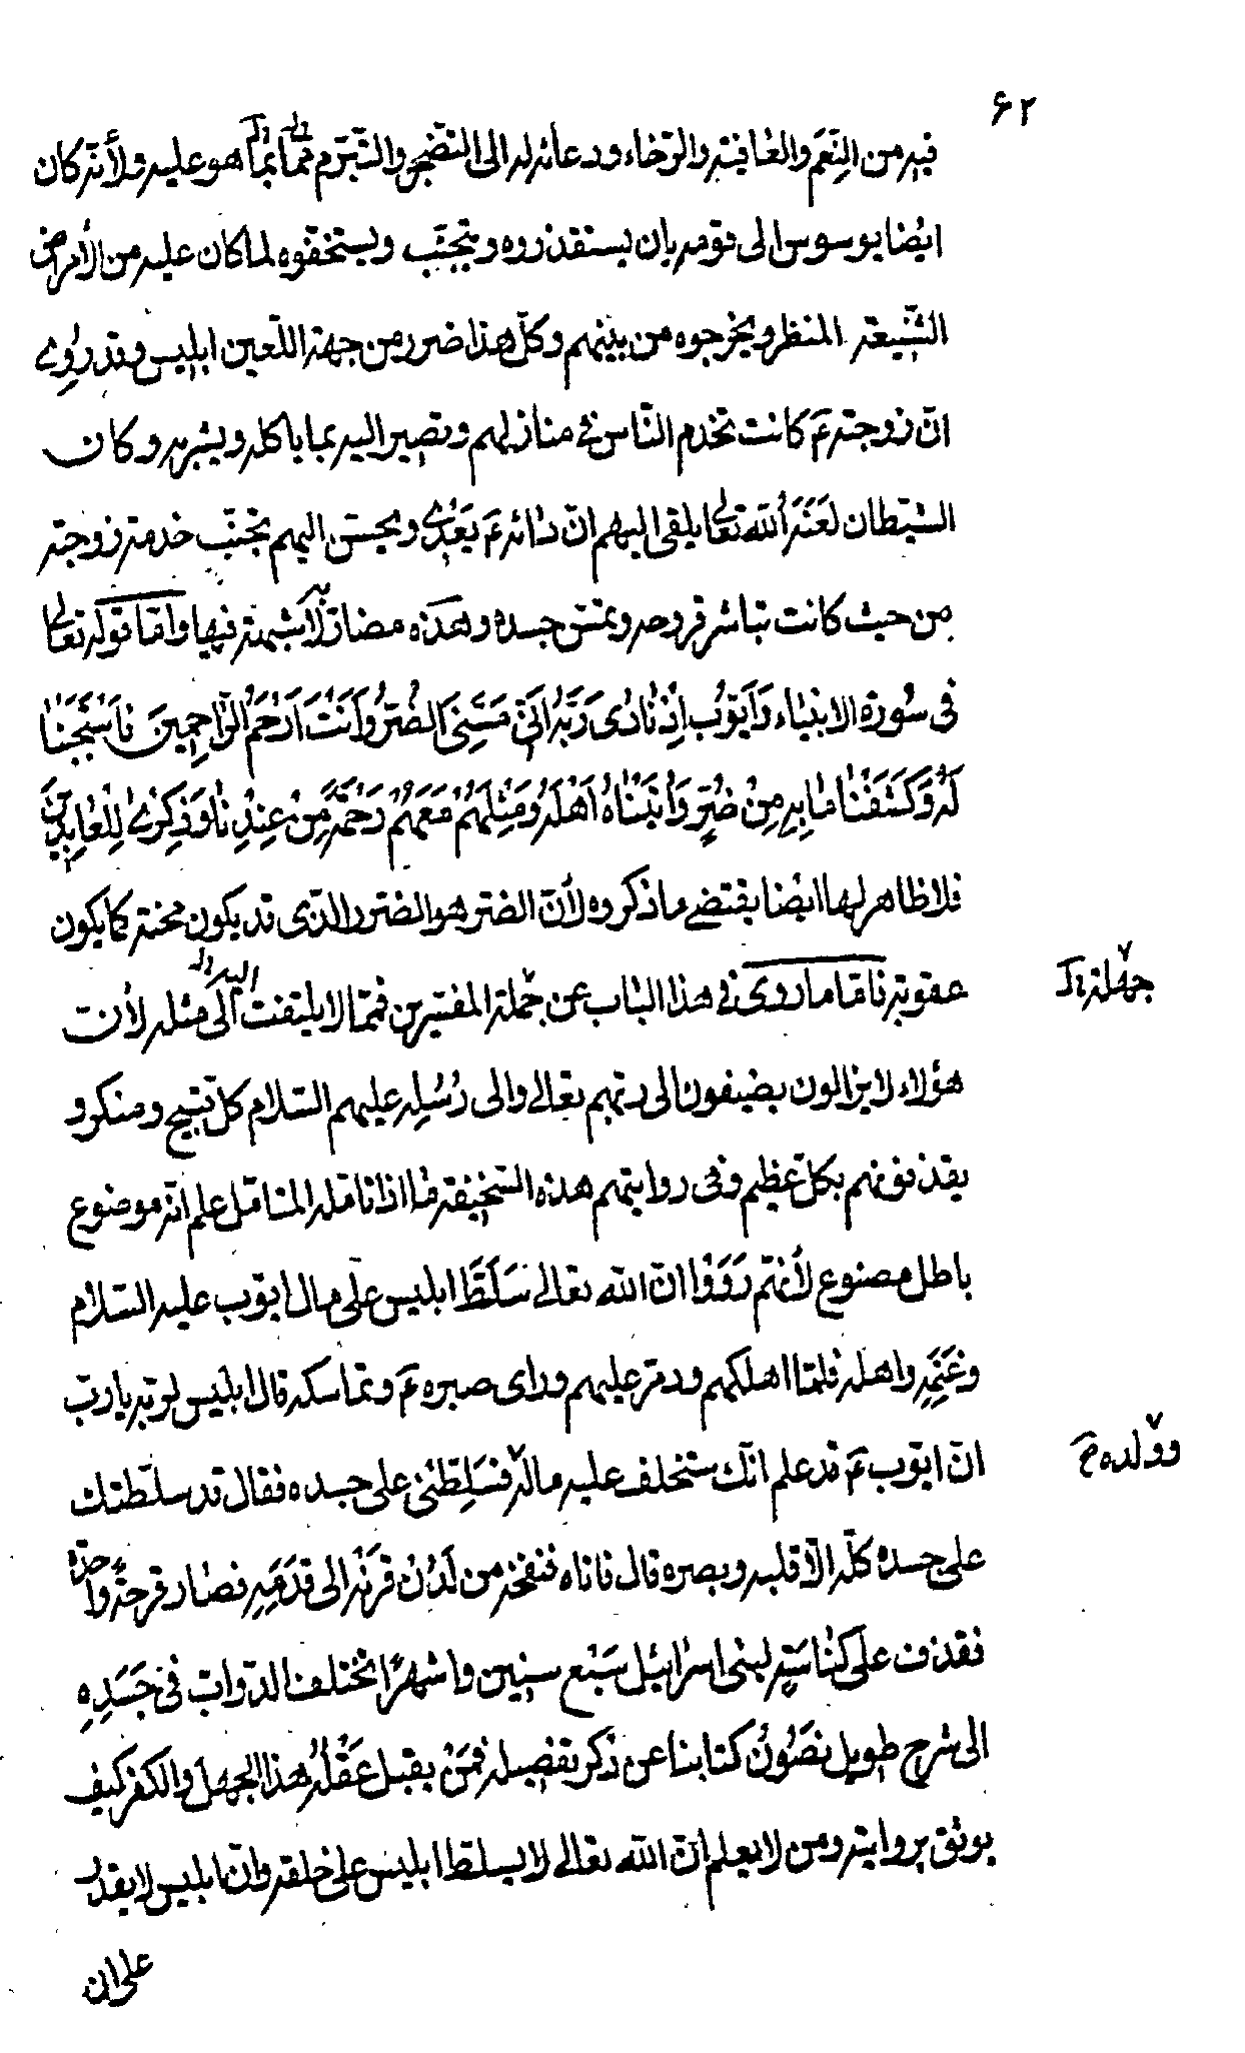 ۶۲
فيه من النِّعَم والعافية والرّخاء ودعائه له الى التضجّر والتّبرّم ممّا بما هو عليه ولأنّه كان
ايضا يوسوس الى قومه بان يستقذروه ويتجنّب ويستخفّوه لما كان عليه من الأمراض
الشّنيعة المنظر ويخرجوه من بينهم وكلّ هذا ضرر من جهة اللّعين ابليس وقد رُوِى
انّ زوجته ع كانت تخدم النّاس فى منازلهم وتصير اليه بما ياكله ويشربه وكان
الشيطان لعنه الله تعالى يلقى اليهم انّ دائه ع يَعْدِى ويحسّن اليهم تجنّب خدمة زوجته
من حيث كانت تباشر قروحه وتمسّ جسده وهذه مضارّ لا شبهة فيها وامّا قوله تعالى
فى سُورة الانبياء وَاَيّوُبَ اِذْ نادى رَبَّهُ اَنّى مَسَّنِىَ الضُّرُّ وَاَنْتَ اَرْحَمُ الرّاحِمِينَ فَاسْتَجَبْنا
لَهُ وَكَشَفْنا ما بِهِ مِنْ ضُرٍّ وَاتَيْناهُ اَهْلَهُ وَمِثْلَهُمْ مَعَهُمْ رَحْمَةً مِنْ عِنْدِنا وَذِكْرى لِلْعابِدِينَ
فلا ظاهر لها ايضا يقتضى ما ذكروه لأنّ الضرّ هو الضرر الذّى قد يكون محنة كما يكون
عقوبة فامّا ما روى فى هذا الباب عن جملة المفسّرين فممّا لا يلتفت الى مثله لأنّ
اليه
جهلة
هؤلاء لا يزالون يضيفون الى ربّهم تعالى والى رُسُلِه عليهم السّلام كلّ قبيح ومنكر و
يقذفونهم بكلّ عظيم وفى روايتهم هذه السّخيفة ما اذا تامّله المتامّل علم انّه موضوع
باطل مصنوع لأنّهم رَوَوْا انّ الله تعالى سَلَّطَ ابليس على مال ايّوب عليه السّلام
وغَنَمِه واهله فلمّا اهلكهم ودمّر عليهم وراى صبره ع وتماسكه قال ابليس لربّه يا ربّ
انّ ايّوب ع قد علم انّك ستخلف عليه ماله فسَلِّطْنى على جسده فقال قد سلّطتك
وولده
على جسده كلّه الّا قلبه وبصره قال فاتاه فنفخه من لَدُنْ قَرْنِه الى قَدَمِه فصار قرحةً واحدة
فقذف على كُناسَةٍ لبنى اسرائيل سَبْع سنين واشهرًا تختلف الدّوابّ فى جَسَدِه
الى شرح طويل نصُونُ كتابنا عن ذكر تفصيله فمَنْ يقبل عَقْلُه هذا الجهل والكفر كيف
يوثق بروايته ومن لا يعلم انّ الله تعالى لا يسلّط ابليس على خلقه وانّ ابليس لا يقدر
على ان